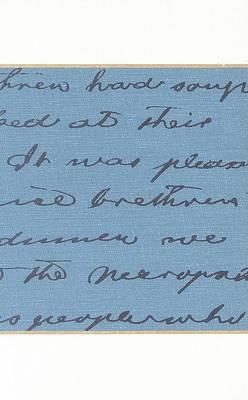 thren had soup
bed at their
It was pleas
ice brethren
dinner we
the Necropo
s people who